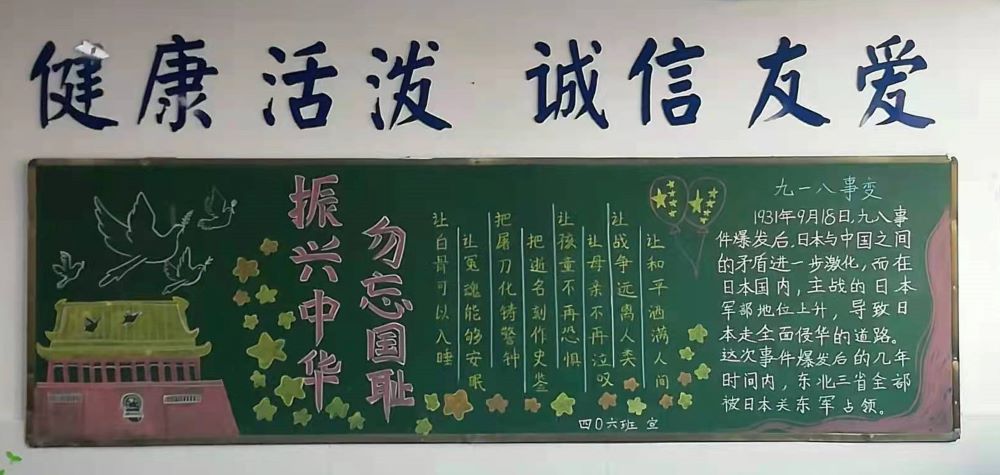 健康活泼 诚信友爱
振兴中华
勿忘国耻
让白骨可以入睡
让冤魂能够安眠
把屠刀化铸警钟
把逝名刻作史鉴
让孩童不再恐惧
让母亲不再泣叹
让战争远离人类
让和平洒满人间
四0六班 宣
九一八事变
1931年9月18日,九八事
件爆发后,日本与中国之间
的矛盾进一步激化,而在
日本国内,主战的日本
军部地位上升,导致日
本走全面侵华的道路。
这次事件爆发后的几年
时间内,东北三省全部
被日本关东军占领。